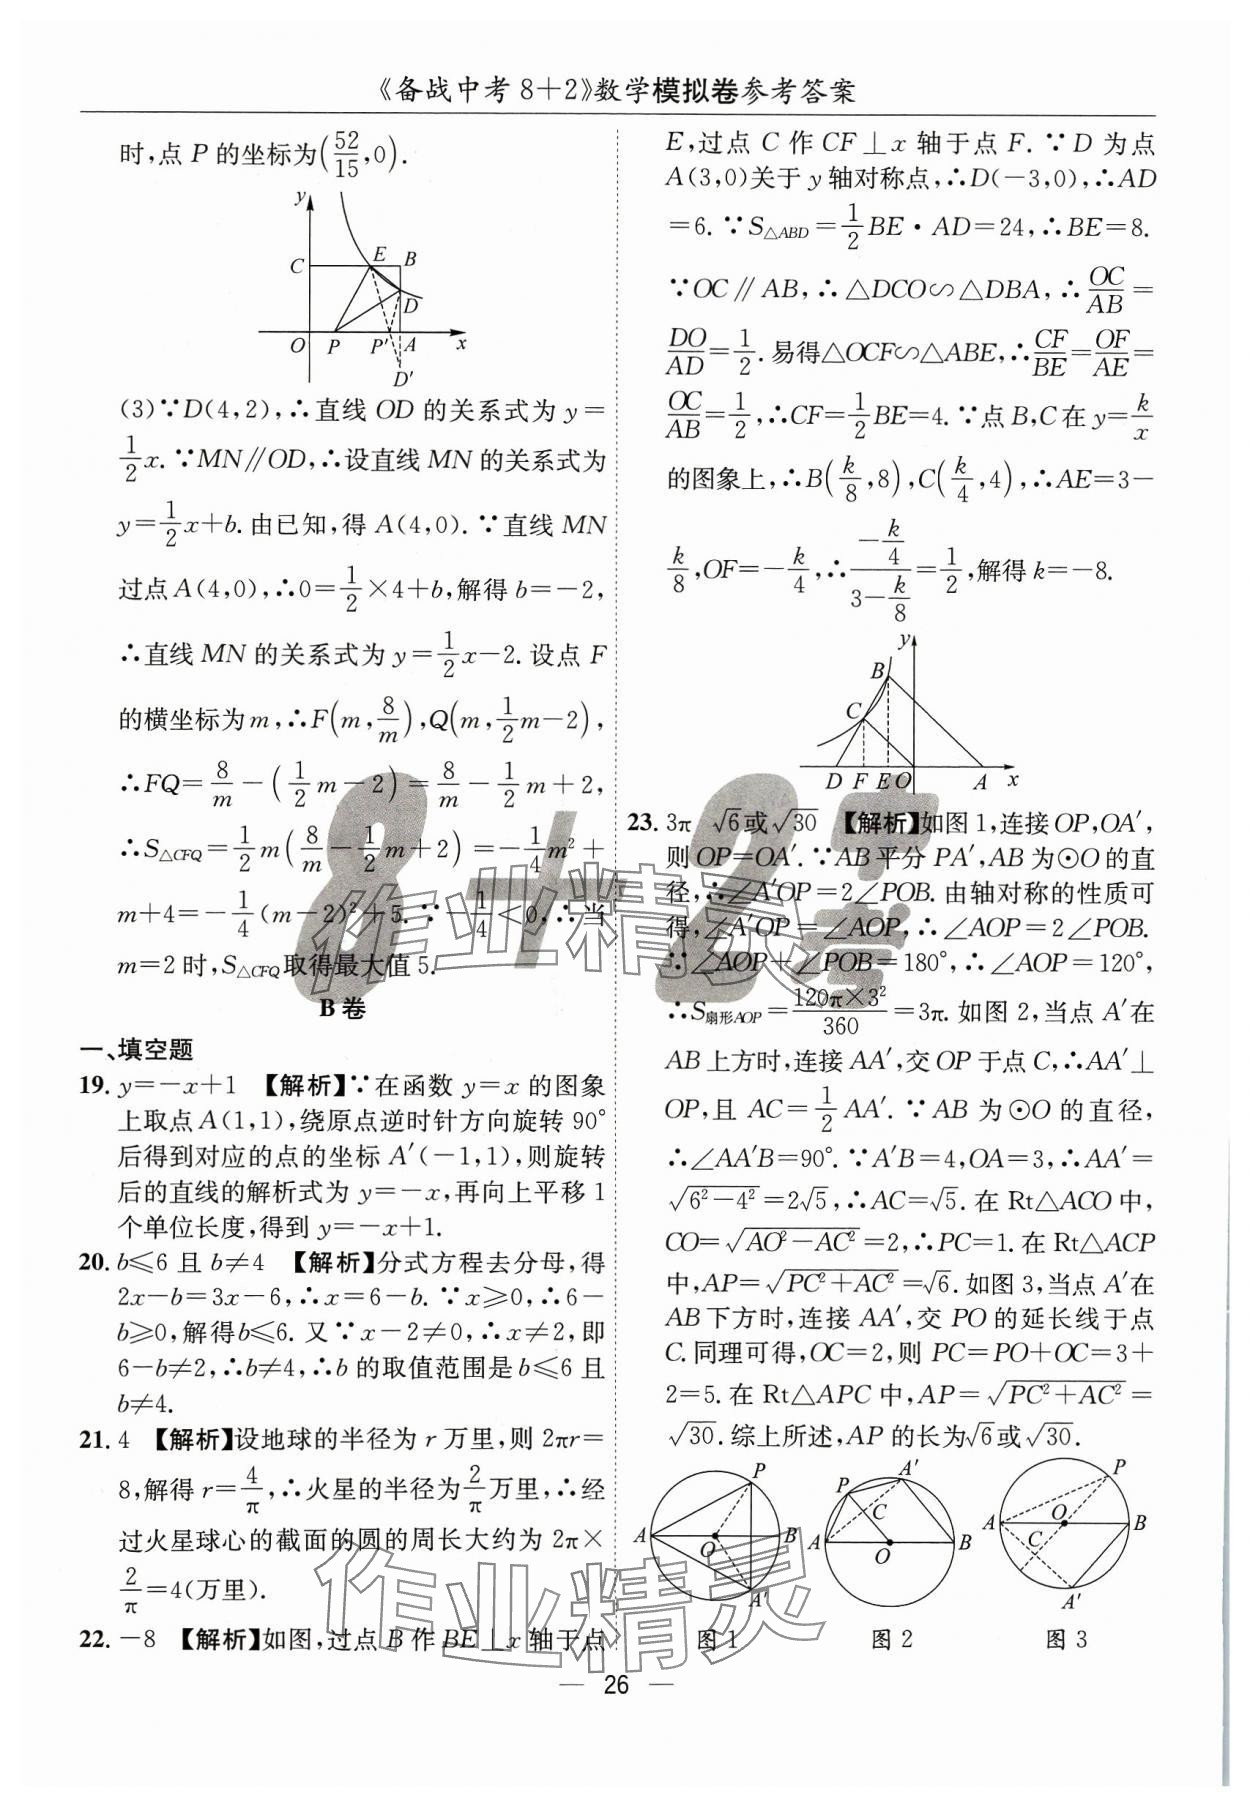 《备战中考8+2》数学模拟卷参考答案
时,点 P 的坐标为(52/15,0).
y
C E B
D
O P P′ A x
D′
(3)∵D(4,2),∴直线 OD 的关系式为 y=
1/2 x.∵MN∥OD,∴设直线 MN 的关系式为
y=1/2 x+b.由已知,得 A(4,0).∵直线 MN
过点 A(4,0),∴0=1/2×4+b,解得 b=-2,
∴直线 MN 的关系式为 y=1/2 x-2.设点 F
的横坐标为 m,∴F(m,8/m),Q(m,1/2 m-2),
∴FQ=8/m-(1/2 m-2)=8/m-1/2 m+2,
∴S△CFQ=1/2 m(8/m-1/2 m+2)=-1/4 m²+
m+4=-1/4(m-2)²+5.∵-1/4<0,∴当
m=2 时,S△CFQ取得最大值 5.
B 卷
一、填空题
19. y=-x+1 【解析】∵在函数 y=x 的图象
上取点 A(1,1),绕原点逆时针方向旋转 90°
后得到对应的点的坐标 A′(-1,1),则旋转
后的直线的解析式为 y=-x,再向上平移 1
个单位长度,得到 y=-x+1.
20. b≤6 且 b≠4 【解析】分式方程去分母,得
2x-b=3x-6,∴x=6-b.∵x≥0,∴6-
b≥0,解得b≤6.又∵x-2≠0,∴x≠2,即
6-b≠2,∴b≠4,∴b 的取值范围是 b≤6 且
b≠4.
21. 4 【解析】设地球的半径为 r 万里,则 2πr=
8,解得 r=4/π,∴火星的半径为2/π万里,∴经
过火星球心的截面的圆的周长大约为 2π×
2/π=4(万里).
22. -8 【解析】如图,过点 B 作 BE⊥x 轴于点
E,过点 C 作 CF⊥x 轴于点 F.∵D 为点
A(3,0)关于 y 轴对称点,∴D(-3,0),∴AD
=6.∵S△ABD=1/2 BE·AD=24,∴BE=8.
∵OC∥AB,∴△DCO∽△DBA,∴OC/AB=
DO/AD=1/2.易得△OCF∽△ABE,∴CF/BE=OF/AE=
OC/AB=1/2,∴CF=1/2 BE=4.∵点 B,C 在 y=k/x
的图象上,∴B(k/8,8),C(k/4,4),∴AE=3-
k/8,OF=-k/4,∴(-k/4)/(3-k/8)=1/2,解得 k=-8.
y
B
C
D F E O A x
23. 3π √6或√30 【解析】如图 1,连接 OP,OA′,
则 OP=OA′.∵AB 平分 PA′,AB 为⊙O 的直
径,∴∠A′OP=2∠POB.由轴对称的性质可
得,∠A′OP=∠AOP,∴∠AOP=2∠POB.
∵∠AOP+∠POB=180°,∴∠AOP=120°,
∴S扇形AOP=120π×3²/360=3π.如图 2,当点 A′在
AB 上方时,连接 AA′,交 OP 于点 C,∴AA′⊥
OP,且 AC=1/2 AA′.∵AB 为⊙O 的直径,
∴∠AA′B=90°.∵A′B=4,OA=3,∴AA′=
√(6²-4²)=2√5,∴AC=√5.在 Rt△ACO 中,
CO=√(AO²-AC²)=2,∴PC=1.在 Rt△ACP
中,AP=√(PC²+AC²)=√6.如图 3,当点 A′在
AB 下方时,连接 AA′,交 PO 的延长线于点
C.同理可得,OC=2,则 PC=PO+OC=3+
2=5.在 Rt△APC 中,AP=√(PC²+AC²)=
√30.综上所述,AP 的长为√6或√30.
P
A O B
A′
图 1
P A′
C
A O B
图 2
P
A O B
C
A′
图 3
8+2中考
作业精灵
作业精灵
— 26 —